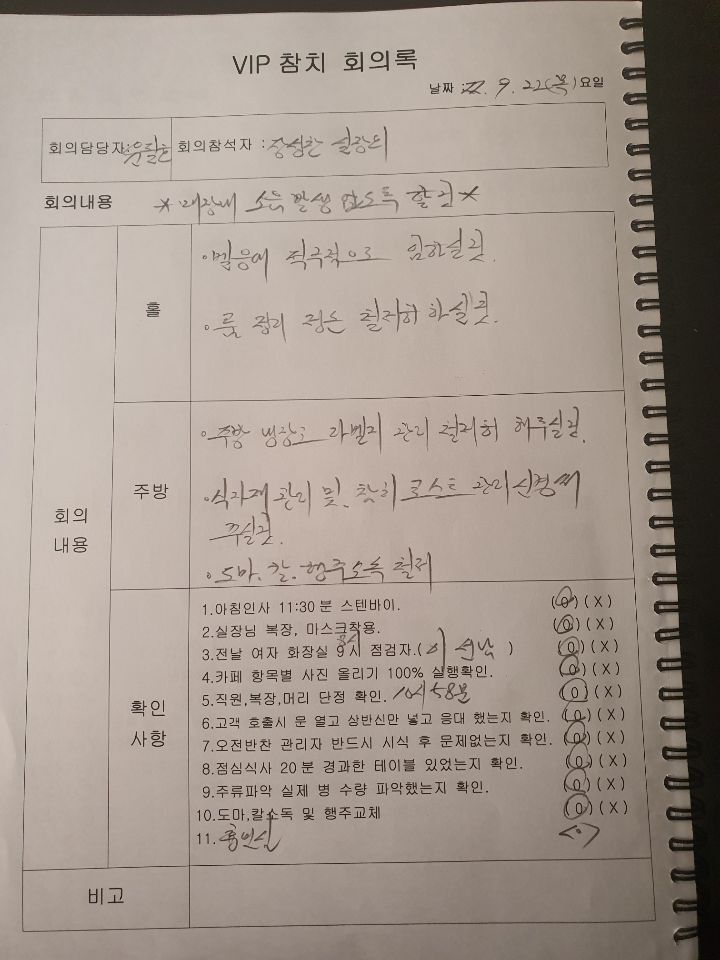 VIP 참치 회의록
날짜 : 22. 9. 22(목)요일
회의담당자: 회의참석자 : 장성찬 실장외
회의내용 * 매장내 소음 발생 않도록 할것 *
홀
·벨응대 적극적으로 임하실것.
·룸 정리 정돈 철저히 하실것.
주방
·주방 냉장고 라벨지 관리 철저히 해주실것.
·식자재 관리 및 참치 로스트 관리 신경써
주실것.
·도마.칼.행주소독 철저
회의
내용
확인
사항
1.아침인사 11:30 분 스텐바이. (0)(X)
2.실장님 복장, 마스크착용. (0)(X)
3.전날 여자 화장실 9시 점검자.( ) (0)(X)
4.카페 항목별 사진 올리기 100% 실행확인. (0)(X)
5.직원,복장,머리 단정 확인. 10시 58분 (0)(X)
6.고객 호출시 문 열고 상반신만 넣고 응대 했는지 확인. (0)(X)
7.오전반찬 관리자 반드시 시식 후 문제없는지 확인. (0)(X)
8.점심식사 20 분 경과한 테이블 있었는지 확인. (0)(X)
9.주류파악 실제 병 수량 파악했는지 확인. (0)(X)
10.도마,칼소독 및 행주교체 (0)(X)
11.
비고